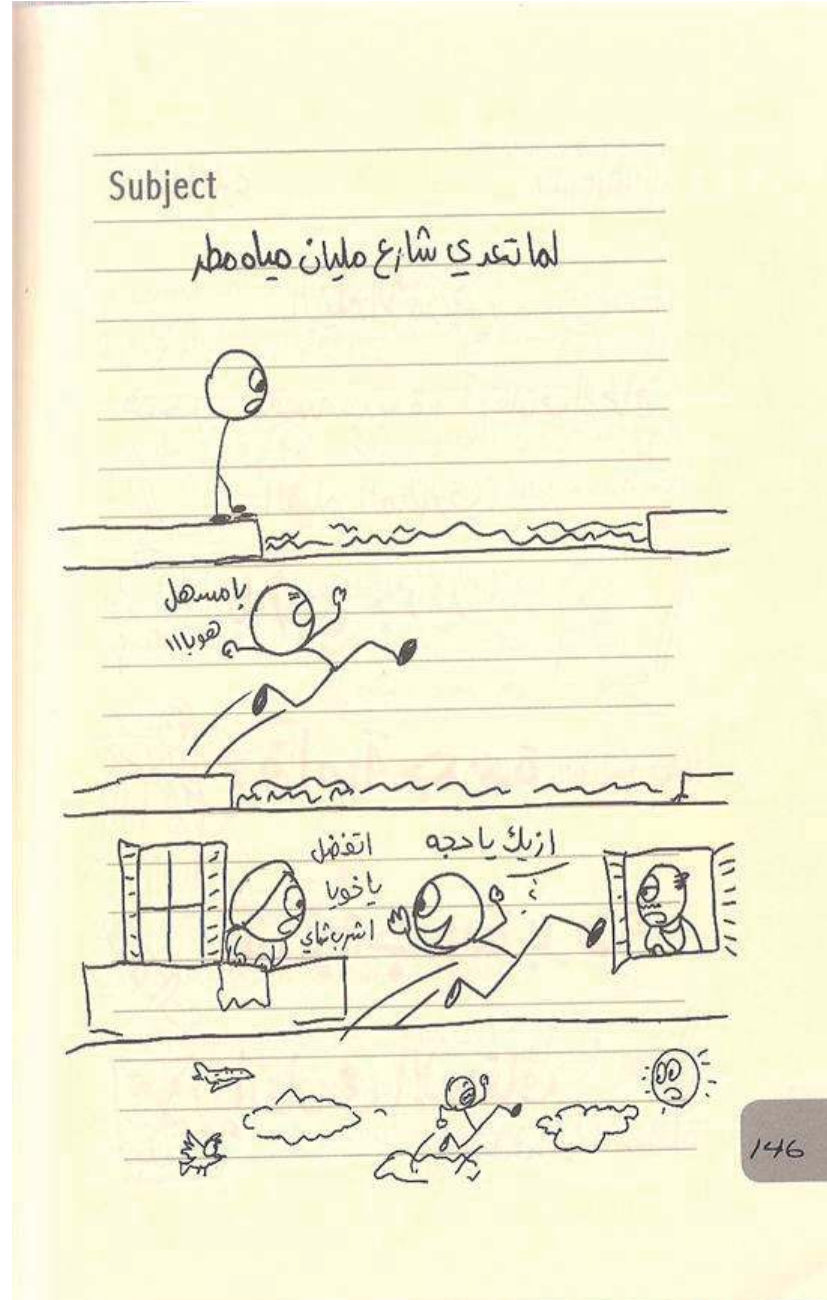 Subject
لما تعدي شارع مليان مياه مطر
يا مسهل
هوبا!!
ازيك يا حجه
اتفضل
ياخويا
اشرب شاي
146